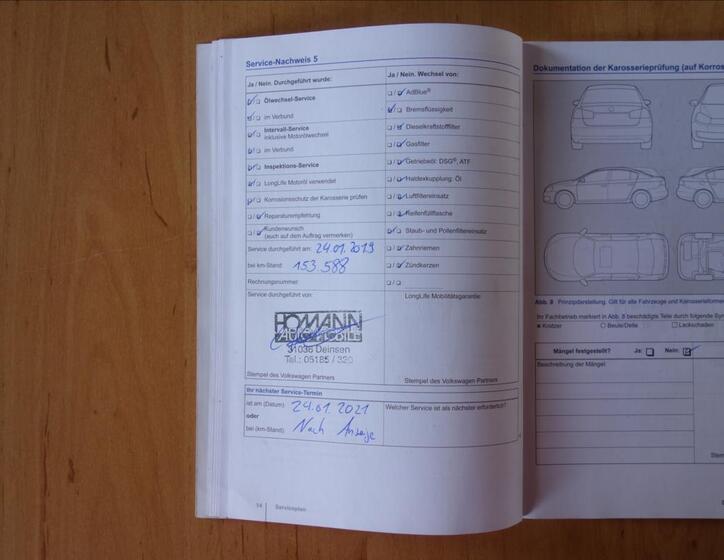 Service-Nachweis 5
Ja / Nein. Durchgeführt wurde:
Ölwechsel-Service
im Verbund
Intervall-Service
inklusive Motorölwechsel
im Verbund
Inspektions-Service
LongLife Motoröl verwendet
Korrosionsschutz der Karosserie prüfen
Reparaturempfehlung
Kundenwunsch
(auch auf dem Auftrag vermerken)
Service durchgeführt am: 24.01.2019
bei km-Stand: 153.588
Rechnungsnummer:
Service durchgeführt von:
HOMANN
AUTOMOBILE
31036 Deinsen
Tel.: 05185 / 320
Stempel des Volkswagen Partners
Ja / Nein. Wechsel von:
AdBlue®
Bremsflüssigkeit
Dieselkraftstofffilter
Gasfilter
Getriebeöl: DSG®, ATF
Haldexkupplung: Öl
Luftfiltereinsatz
Reifenfüllflasche
Staub- und Pollenfiltereinsatz
Zahnriemen
Zündkerzen
LongLife Mobilitätsgarantie:
Stempel des Volkswagen Partners
Ihr nächster Service-Termin
ist am (Datum): 24.01.2021
oder
bei (km-Stand): Nach Anzeige
Welcher Service ist als nächster erforderlich?
14 Serviceplan
Dokumentation der Karosserieprüfung (auf Korros
Abb. 8 Prinzipdarstellung. Gilt für alle Fahrzeuge und Karosseriefor
Ihr Fachbetrieb markiert in Abb. 8 beschädigte Teile durch folgende Sy
Kratzer Beule/Delle Lackschaden
Mängel festgestellt? Ja: Nein:
Beschreibung der Mängel:
Stem